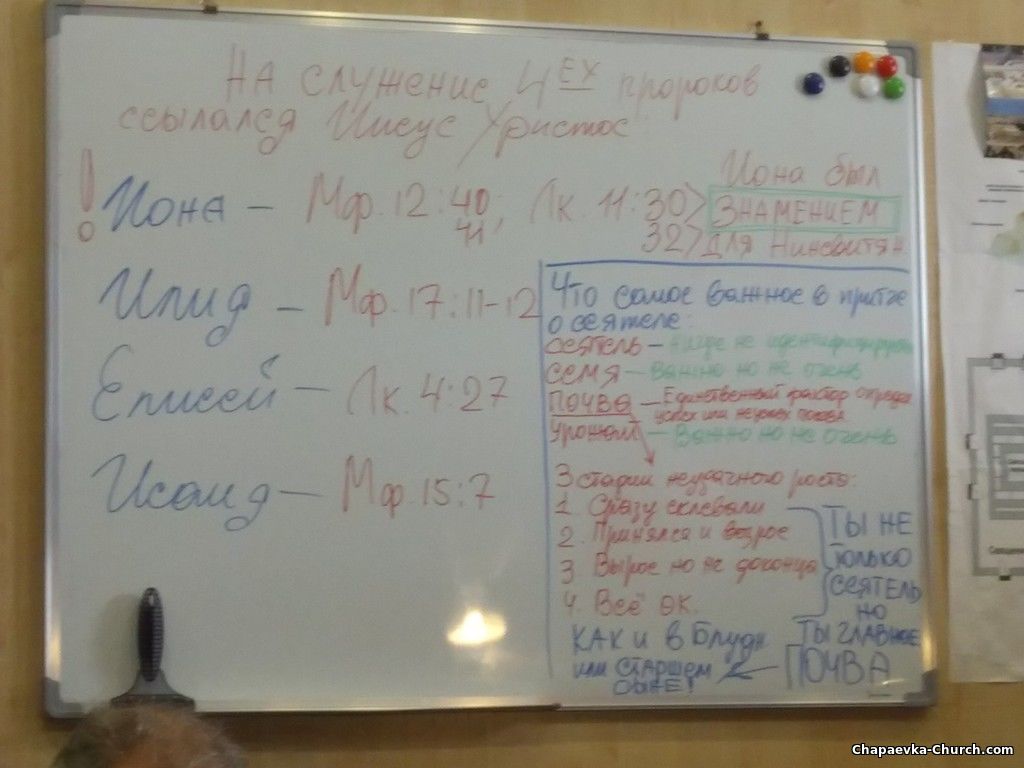 НА служение 4ЕХ пророков
ссылался Иисус Христос:
! Иона – Мф. 12:40, 41, Лк. 11:30 32
Иона был
ЗНАМЕНИЕМ
для Ниневитян
Илия – Мф. 17:11-12
Елисей – Лк. 4:27
Исаия – Мф. 15:7
Что самое важное в притче
о сеятеле:
сеятель – нигде не идентифицирован
семя – Важно но не очень
почва – Единственный фактор определ
успех или неуспех посева
урожай – Важно но не очень
3 стадии неудачного роста:
1. Сразу склевали
2. Принялся и возрос
3. Вырос но не доконца
4. Всё ок.
ТЫ НЕ
только
сеятель
но
ТЫ ГЛАВНОЕ
ПОЧВА
КАК и в Блудн
или СТАРШЕМ
СЫНЕ!
Chapaevka-Church.com